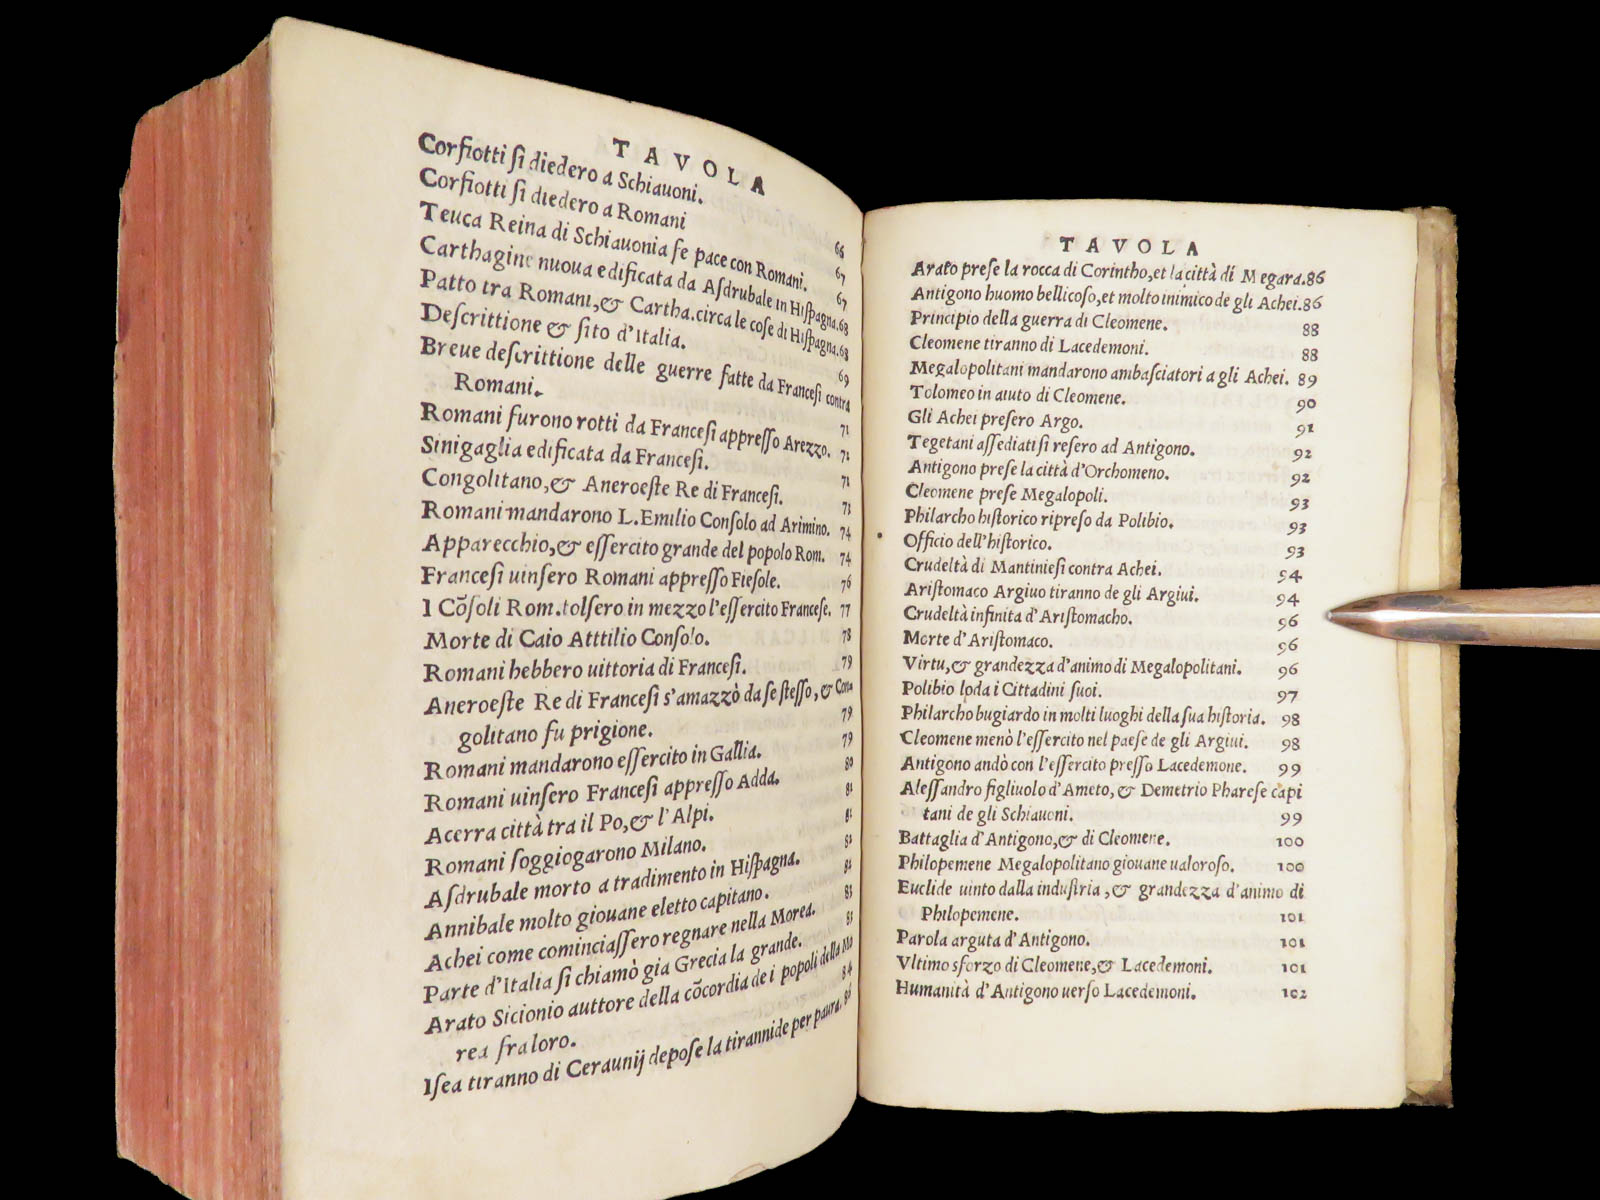 TAVOLA
Corfiotti ſi diedero a Schiauoni. 66
Corfiotti ſi diedero a Romani 67
Teuca Reina di Schiauonia fe pace con Romani. 67
Carthagine nuoua edificata da Aſdrubale in Hiſpagna. 68
Patto tra Romani, & Cartha. circa le coſe di Hiſpagna. 68
Deſcrittione & ſito d'Italia. 69
Breue deſcrittione delle guerre fatte da Franceſi contra
Romani. 71
Romani furono rotti da Franceſi appreſſo Arezzo. 71
Sinigaglia edificata da Franceſi. 71
Congolitano, & Aneroeſte Re di Franceſi. 73
Romani mandarono L. Emilio Conſolo ad Arimino. 74
Apparecchio, & eſſercito grande del popolo Rom. 74
Franceſi uinſero Romani appreſſo Fieſole. 76
I Cõſoli Rom. tolſero in mezzo l'eſſercito Franceſe. 77
Morte di Caio Atttilio Conſolo. 78
Romani hebbero uittoria di Franceſi. 79
Aneroeſte Re di Franceſi s'amazzò da ſe ſteſſo, & Con
golitano fu prigione. 79
Romani mandarono eſſercito in Gallia. 79
Romani uinſero Franceſi appreſſo Adda. 80
Acerra città tra il Po, & l'Alpi. 81
Romani ſoggiogarono Milano.
Aſdrubale morto a tradimento in Hiſpagna.
Annibale molto giouane eletto capitano.
Achei come cominciaſſero regnare nella Morea. 83
Parte d'Italia ſi chiamò gia Grecia la grande. 83
Arato Sicionio auttore della cõcordia de i popoli della Mo
rea fra loro. 84
Iſea tiranno di Ceraunij depoſe la tirannide per paura. 86
TAVOLA
Arato preſe la rocca di Corintho, et la città di Megara. 86
Antigono huomo bellicoſo, et molto inimico de gli Achei. 86
Principio della guerra di Cleomene. 88
Cleomene tiranno di Lacedemoni. 88
Megalopolitani mandarono ambaſciatori a gli Achei. 89
Tolomeo in aiuto di Cleomene. 90
Gli Achei preſero Argo. 91
Tegetani aſſediati ſi reſero ad Antigono. 92
Antigono preſe la città d'Orchomeno. 92
Cleomene preſe Megalopoli. 93
Philarcho hiſtorico ripreſo da Polibio. 93
Officio dell'hiſtorico. 93
Crudeltà di Mantinieſi contra Achei. 94
Ariſtomaco Argiuo tiranno de gli Argiui. 94
Crudeltà infinita d'Ariſtomacho. 96
Morte d'Ariſtomaco. 96
Virtu, & grandezza d'animo di Megalopolitani. 96
Polibio loda i Cittadini ſuoi. 97
Philarcho bugiardo in molti luoghi della ſua hiſtoria. 98
Cleomene menò l'eſſercito nel paeſe de gli Argiui. 98
Antigono andò con l'eſſercito preſſo Lacedemone. 99
Aleſſandro figliuolo d'Ameto, & Demetrio Phareſe capi
tani de gli Schiauoni. 99
Battaglia d'Antigono, & di Cleomene. 100
Philopemene Megalopolitano giouane ualoroſo. 100
Euclide uinto dalla induſtria, & grandezza d'animo di
Philopemene. 101
Parola arguta d'Antigono. 101
Vltimo sforzo di Cleomene, & Lacedemoni. 101
Humanità d'Antigono uerſo Lacedemoni. 102